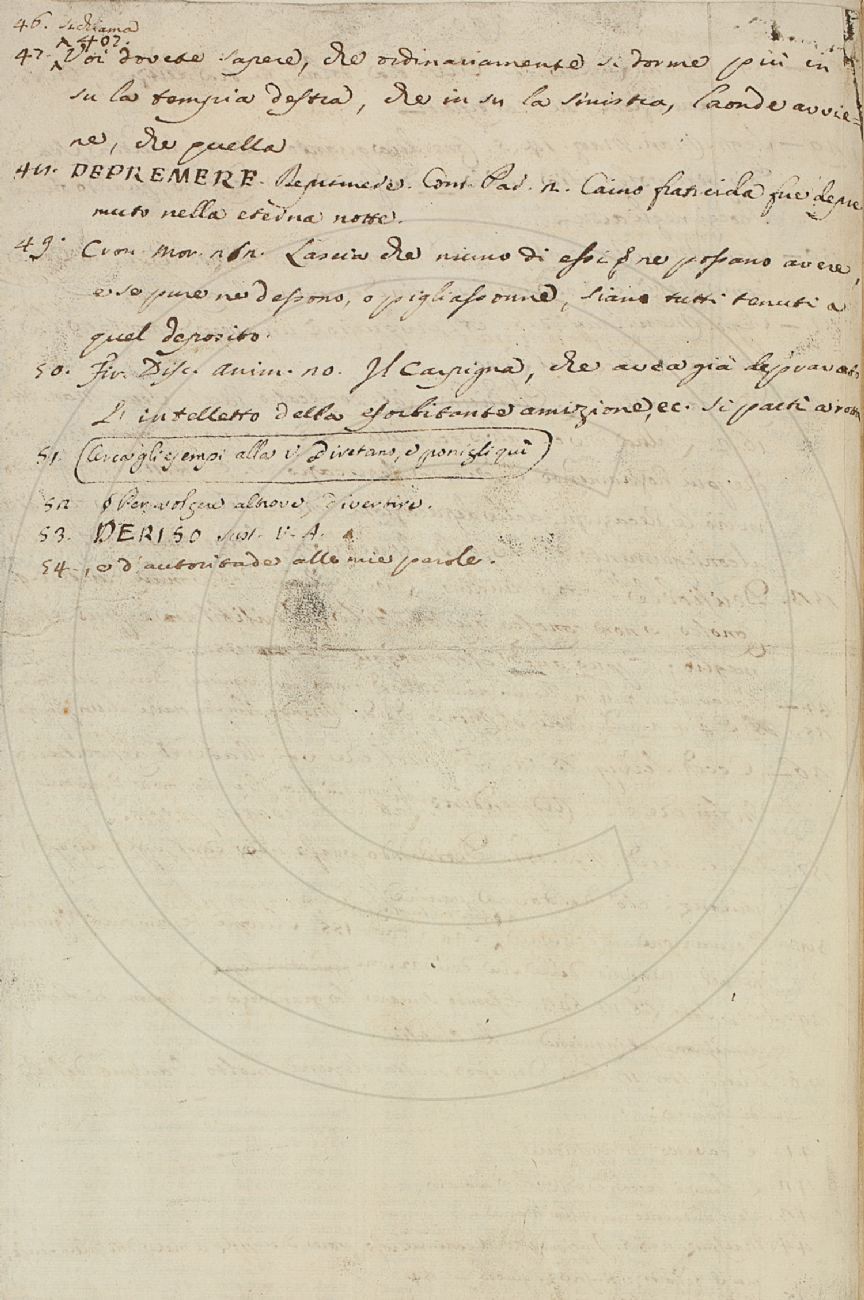 46. si chiama
^ 407.
47. ^ Voi dovete sapere, che ordinariamente si dorme più in
su la tempia destra, che in su la sinistra, laonde avvie=
ne, che quella
48. DEPREMERE. Reprimere. Com. Par. n. Caino fratricida fue depre
muto nella eterna notte.
49. Cron. Mor. Lascia che niuno di essi ne possano avere,
e se pure ne dessono, o pigliassonne, siano tutti tenuti a
quel deposito.
50. Fir. Disc. anim. no. Il Carpigna, che avea già depravato
L' intelletto della esorbitante amizione, ec. si partì a rotta
51. Cerca gli esempi alla v. Divetano, e ponigli qui
52. § Per volgere altrove, divertire.
53. DERISO Sust. V. A.
54. , e d' autoritade alle mie parole.